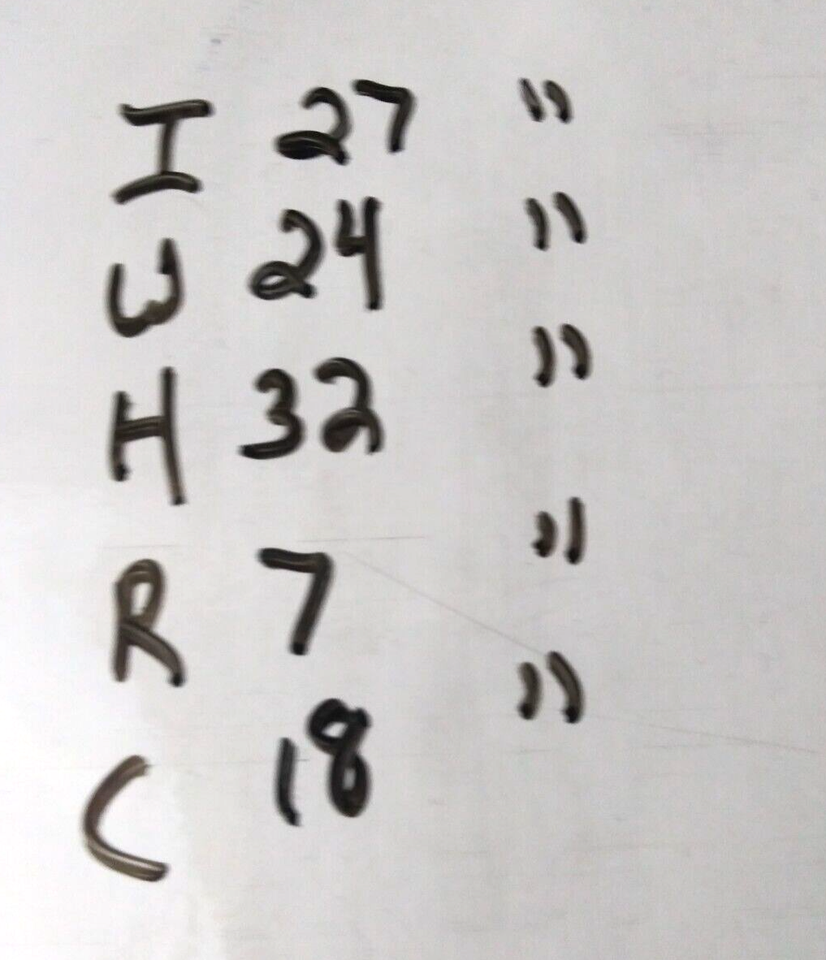 I 27 "
W 24 "
H 32 "
R 7 "
C 18 "